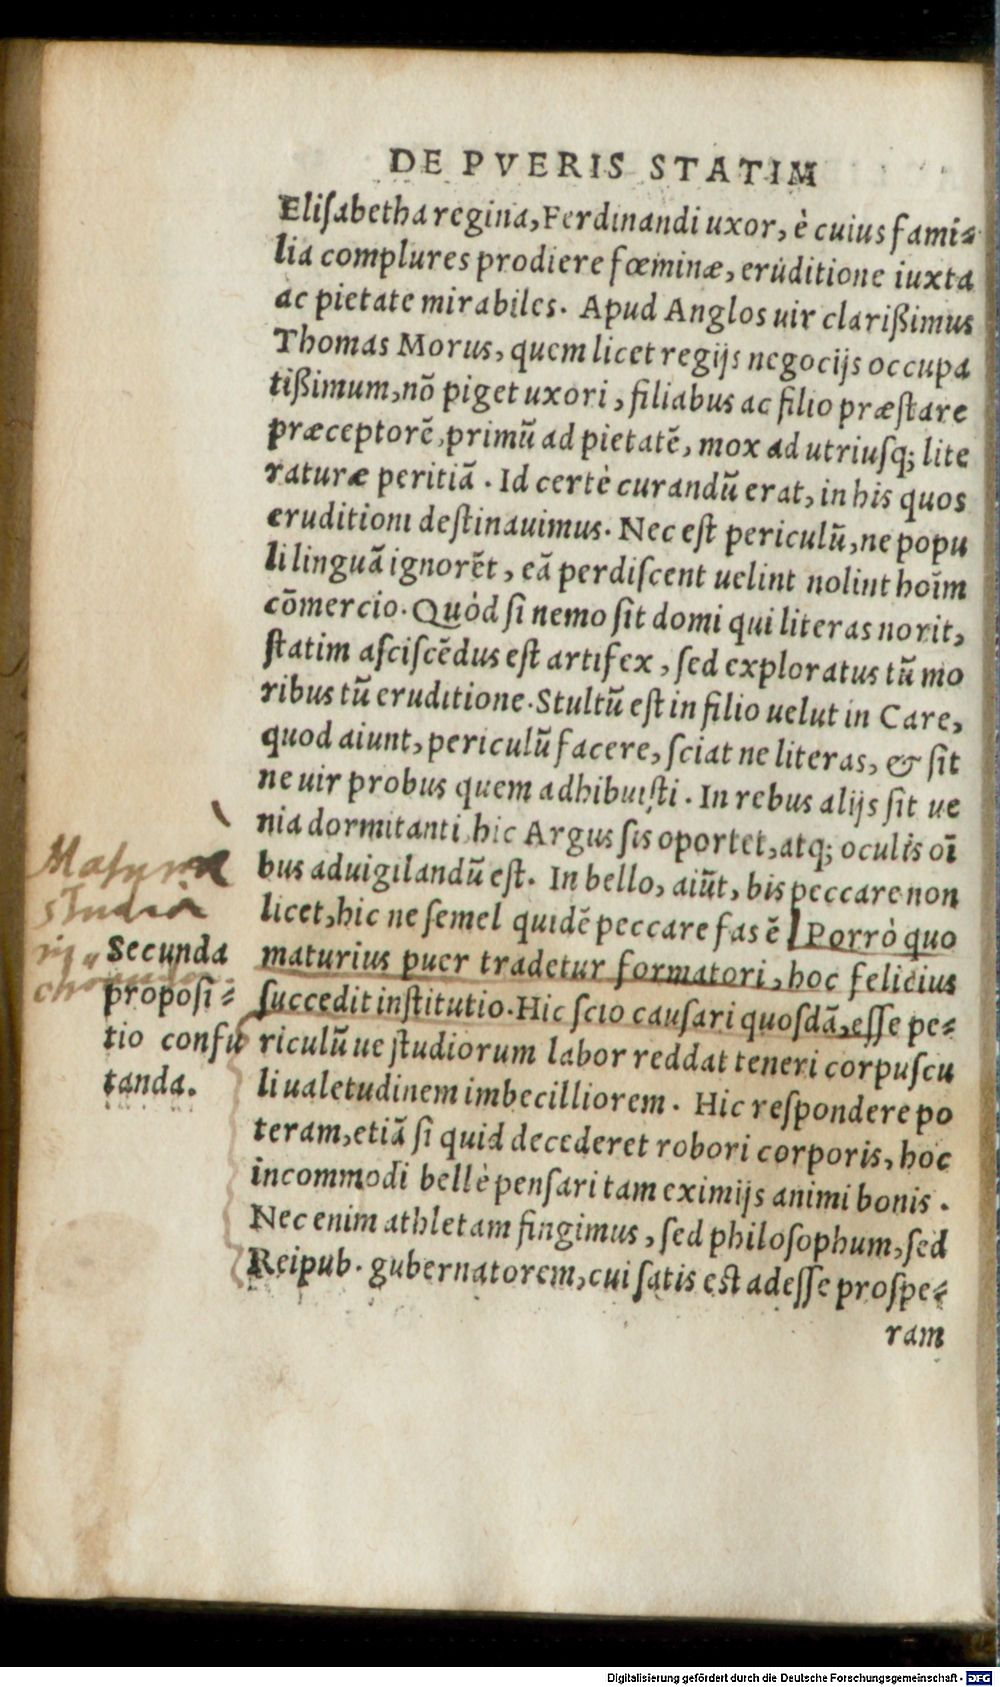 DE PVERIS STATIM
Elisabetha regina, Ferdinandi uxor, è cuius fami⸗
lia complures prodiere fœminæ, eruditione iuxta
ac pietate mirabiles. Apud Anglos uir clarißimus
Thomas Morus, quem licet regijs negocijs occupa
tißimum, nō piget uxori, filiabus ac filio præſtare
præceptorē, primū ad pietatē, mox ad utriuſq; lite
raturæ peritiā. Id certè curandū erat, in his quos
eruditioni deſtinauimus. Nec eſt periculū, ne popu
li linguā ignorēt, eā perdiſcent uelint nolint hoīm
cōmercio. Quòd ſi nemo ſit domi qui literas norit,
ſtatim aſciſcēdus eſt artifex, ſed exploratus tū mo
ribus tū eruditione. Stultū eſt in filio uelut in Care,
quod aiunt, periculū facere, ſciat ne literas, & ſit
ne uir probus quem adhibuiſti. In rebus alijs ſit ue
nia dormitanti, hic Argus ſis oportet, atq; oculis oī
bus aduigilandū eſt. In bello, aiūt, bis peccare non
licet, hic ne ſemel quidē peccare fas ē. Porrò quo
maturius puer tradetur formatori, hoc felicius
ſuccedit inſtitutio. Hic ſcio cauſari quoſdā, eſſe pe⸗
riculū ue ſtudiorum labor reddat teneri corpuſcu
li ualetudinem imbecilliorem. Hic reſpondere po
teram, etiā ſi quid decederet robori corporis, hoc
incommodi bellè penſari tam eximijs animi bonis.
Nec enim athletam fingimus, ſed philoſophum, ſed
Reipub. gubernatorem, cui ſatis eſt adeſſe proſpe⸗
ram
Matura
studia
Secunda
propoſi⸗
tio confu
tanda.
Digitalisierung gefördert durch die Deutsche Forschungsgemeinschaft - DFG